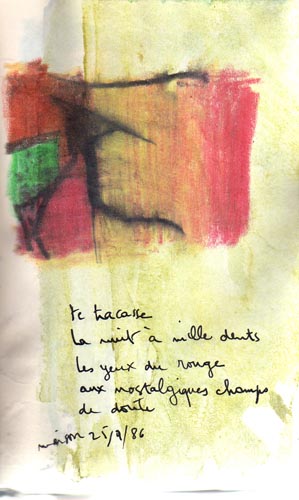 te tracasse
la nuit à mille dents
les yeux du rouge
aux nostalgiques champs
de doute
maison 25/9/86